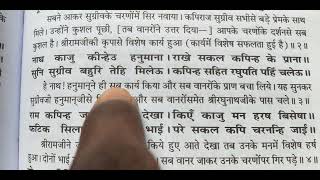 सबने आकर सुग्रीवके चरणोंमें सिर नवाया। कपिराज सुग्रीव सभीसे बड़े प्रेमके साथ
मिले। उन्होंने कुशल पूछी, [तब वानरोंने उत्तर दिया—] आपके चरणोंके दर्शनसे सब
कुशल है। श्रीरामजीकी कृपासे विशेष कार्य हुआ (कार्यमें विशेष सफलता हुई है)॥ २॥
नाथ काजु कीन्हेउ हनुमाना। राखे सकल कपिन्ह के प्राना॥
सुनि सुग्रीव बहुरि तेहि मिलेऊ। कपिन्ह सहित रघुपति पहिं चलेऊ॥
हे नाथ! हनुमान्‌ने ही सब कार्य किया और सब वानरोंके प्राण बचा लिये। यह सुनकर
सुग्रीवजी हनुमान्‌जीसे और सब वानरोंसमेत श्रीरघुनाथजीके पास चले॥ ३॥
राम कपिन्ह देखा। किएँ काजु मन हरष बिसेषा॥
फटिक सिला भाई। परे सकल कपि चरनन्हि जाई॥
श्रीरामजीने किये हुए आते देखा तब उनके मनमें विशेष हर्ष
हुआ। दोनों भाई सब वानर जाकर उनके चरणोंपर गिर पड़े॥ ४॥